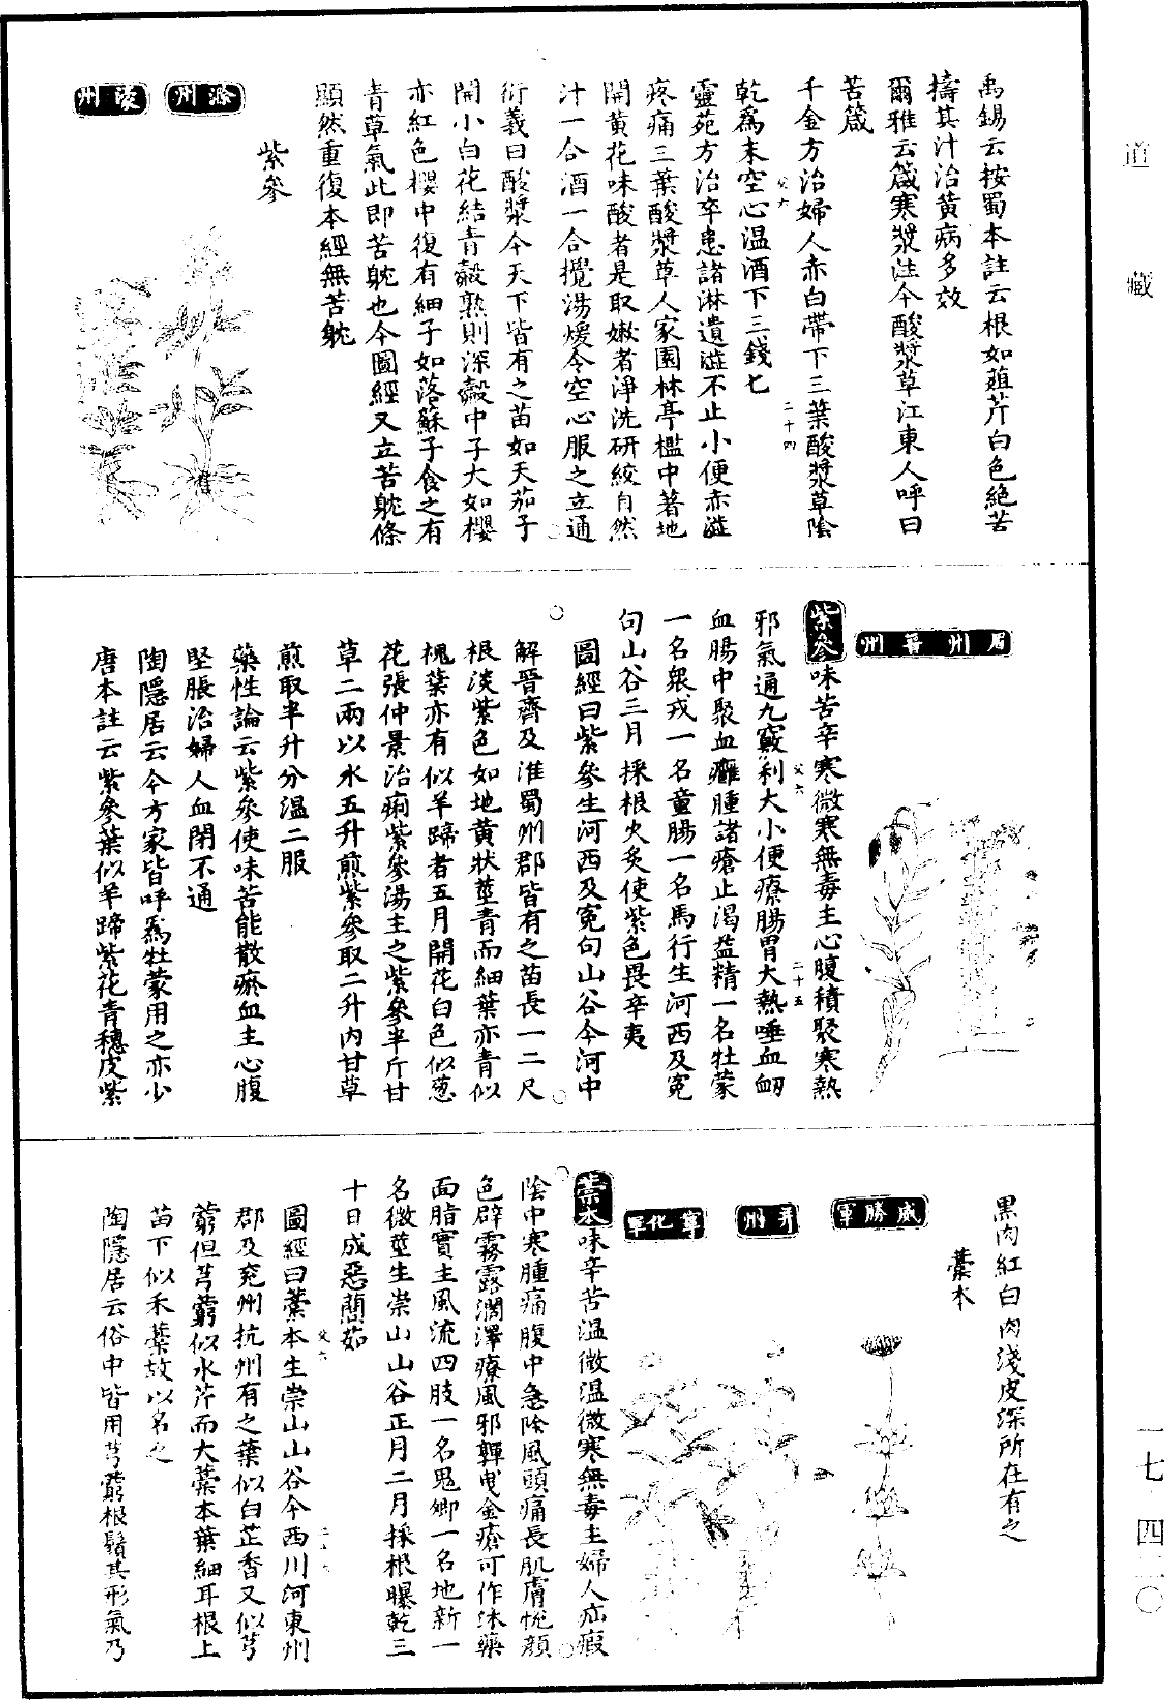 道藏
一七 四二〇
禹錫云按蜀本註云根如葅芹白色絕苦
擣其汁治黃病多效
爾雅云葴寒漿注今酸漿草江東人呼曰
苦葴
千金方治婦人赤白帶下三葉酸漿草陰
乾爲末空心温酒下三錢匕
靈苑方治卒患諸淋遺瀝不止小便赤澁
疼痛三葉酸漿草人家園林亭檻中著地
開黃花味酸者是取嫩者淨洗研絞自然
汁一合酒一合攪湯煖令空心服之立通
衍義曰酸漿今天下皆有之苗如天茄子
開小白花結青殼熟則深殼中子大如櫻
亦紅色櫻中復有細子如落蘇子食之有
青草氣此即苦耽也今圖經又立苦耽條
顯然重復本經無苦耽
紫參
滁州
濠州
眉州
晉州
紫參味苦辛寒微寒無毒主心腹積聚寒熱
邪氣通九竅利大小便療腸胃大熱唾血衂
血腸中聚血癰腫諸瘡止渴益精一名牡蒙
一名衆戎一名童腸一名馬行生河西及寃
句山谷三月採根火炙使紫色畏辛夷
圖經曰紫參生河西及寃句山谷今河中
解晉齊及淮蜀州郡皆有之苗長一二尺
根淡紫色如地黃狀莖青而細葉亦青似
槐葉亦有似羊蹄者五月開花白色似葱
花張仲景治痢紫參湯主之紫參半斤甘
草二兩以水五升煎紫參取二升内甘草
煎取半升分温二服
藥性論云紫參使味苦能散瘀血主心腹
堅脹治婦人血閉不通
陶隱居云今方家皆呼爲牡蒙用之亦少
唐本註云紫參葉似羊蹄紫花青穗皮紫
黑肉紅白肉淺皮深所在有之
藁本
威勝軍
并州
寧化軍
藁本味辛苦温微温微寒無毒主婦人疝瘕
陰中寒腫痛腹中急除風頭痛長肌膚悅顏
色辟霧露潤澤療風邪嚲曳金瘡可作沐藥
面脂實主風流四肢一名鬼卿一名地新一
名微莖生崇山山谷正月二月採根曝乾三
十日成惡䕡茹
圖經曰藁本生崇山山谷今西川河東州
郡及兖州抗州有之葉似白芷香又似芎
藭但芎藭似水芹而大藁本葉細耳根上
苗下似禾藁故以名之
陶隱居云俗中皆用芎藭根鬚其形氣乃